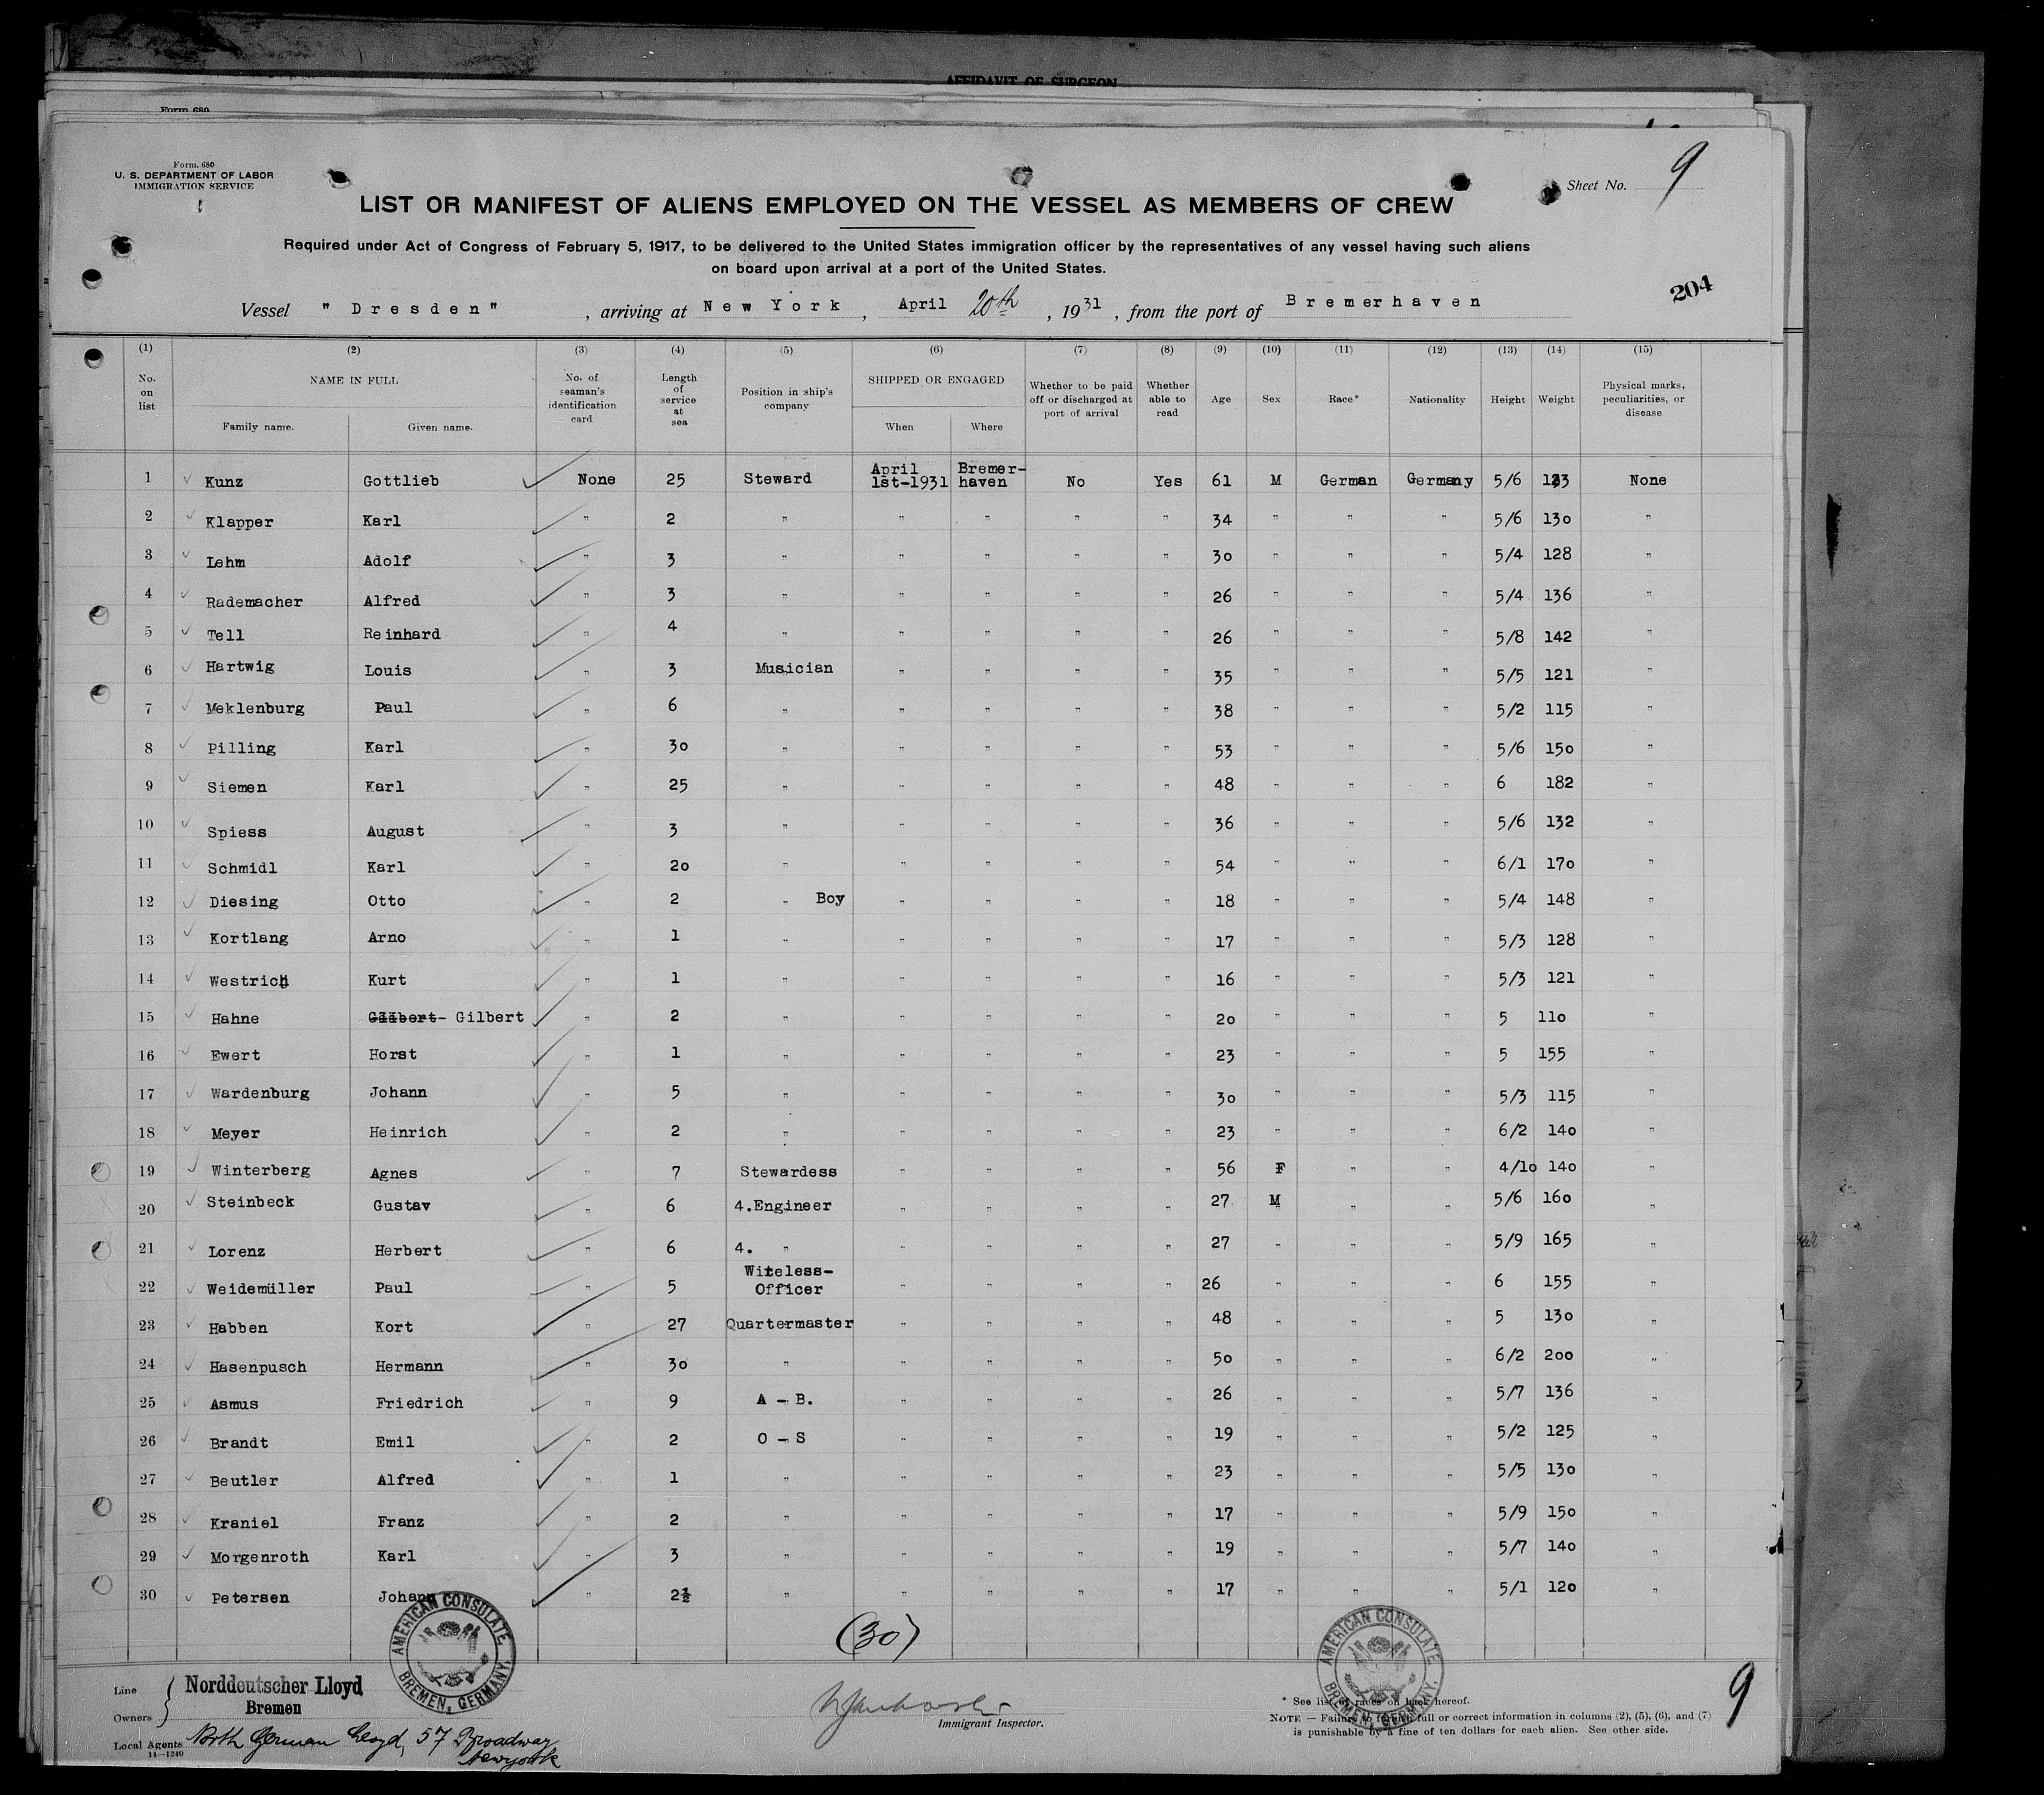 AFFIDAVIT OF SURGEON
Form 680
Form. 680
U. S. DEPARTMENT OF LABOR
IMMIGRATION SERVICE
Sheet No. 9
LIST OR MANIFEST OF ALIENS EMPLOYED ON THE VESSEL AS MEMBERS OF CREW
Required under Act of Congress of February 5, 1917, to be delivered to the United States immigration officer by the representatives of any vessel having such aliens
on board upon arrival at a port of the United States.
204
Vessel " Dresden " , arriving at New York , April 20th , 1931 , from the port of Bremerhaven
(1) (2) (3) (4) (5) (6) (7) (8) (9) (10) (11) (12) (13) (14) (15)
No. on list NAME IN FULL Family name. Given name. No. of seaman's identification card Length of service at sea Position in ship's company SHIPPED OR ENGAGED When Where Whether to be paid off or discharged at port of arrival Whether able to read Age Sex Race* Nationality Height Weight Physical marks, peculiarities, or disease
1 Kunz Gottlieb None 25 Steward April 1st-1931 Bremer-haven No Yes 61 M German Germany 5/6 123 None
2 Klapper Karl " 2 " " " " " 34 " " " 5/6 130 "
3 Lehm Adolf " 3 " " " " " 30 " " " 5/4 128 "
4 Rademacher Alfred " 3 " " " " " 26 " " " 5/4 136 "
5 Tell Reinhard " 4 " " " " " 26 " " " 5/8 142 "
6 Hartwig Louis " 3 Musician " " " " 35 " " " 5/5 121 "
7 Meklenburg Paul " 6 " " " " " 38 " " " 5/2 115 "
8 Pilling Karl " 30 " " " " " 53 " " " 5/6 150 "
9 Siemen Karl " 25 " " " " " 48 " " " 6 182 "
10 Spiess August " 3 " " " " " 36 " " " 5/6 132 "
11 Schmidl Karl " 20 " " " " " 54 " " " 6/1 170 "
12 Diesing Otto " 2 " Boy " " " " 18 " " " 5/4 148 "
13 Kortlang Arno " 1 " " " " " 17 " " " 5/3 128 "
14 Westrich Kurt " 1 " " " " " 16 " " " 5/3 121 "
15 Hahne - Gilbert " 2 " " " " " 20 " " " 5 110 "
16 Ewert Horst " 1 " " " " " 23 " " " 5 155 "
17 Wardenburg Johann " 5 " " " " " 30 " " " 5/3 115 "
18 Meyer Heinrich " 2 " " " " " 23 " " " 6/2 140 "
19 Winterberg Agnes " 7 Stewardess " " " " 56 F " " 4/10 140 "
20 Steinbeck Gustav " 6 4.Engineer " " " " 27 M " " 5/6 160 "
21 Lorenz Herbert " 6 4. " " " " " 27 " " " 5/9 165 "
22 Weidemüller Paul " 5 Wireless-Officer " " " " 26 " " " 6 155 "
23 Habben Kort " 27 Quartermaster " " " " 48 " " " 5 130 "
24 Hasenpusch Hermann " 30 " " " " " 50 " " " 6/2 200 "
25 Asmus Friedrich " 9 A - B. " " " " 26 " " " 5/7 136 "
26 Brandt Emil " 2 O - S " " " " 19 " " " 5/2 125 "
27 Beutler Alfred " 1 " " " " " 23 " " " 5/5 130 "
28 Kraniel Franz " 2 " " " " " 17 " " " 5/9 150 "
29 Morgenroth Karl " 3 " " " " " 19 " " " 5/7 140 "
30 Petersen Johann " 2½ " " " " " 17 " " " 5/1 120 "
(30)
AMERICAN CONSULATE
BREMEN, GERMANY.
AMERICAN CONSULATE
BREMEN, GERMANY.
Line
Owners
Norddeutscher Lloyd
Bremen
Local Agents North German Lloyd, 57 Broadway
Newyork
14—1240
Immigrant Inspector.
* See list of races on back hereof.
NOTE — Failure to furnish full or correct information in columns (2), (5), (6), and (7)
is punishable by a fine of ten dollars for each alien. See other side.
9